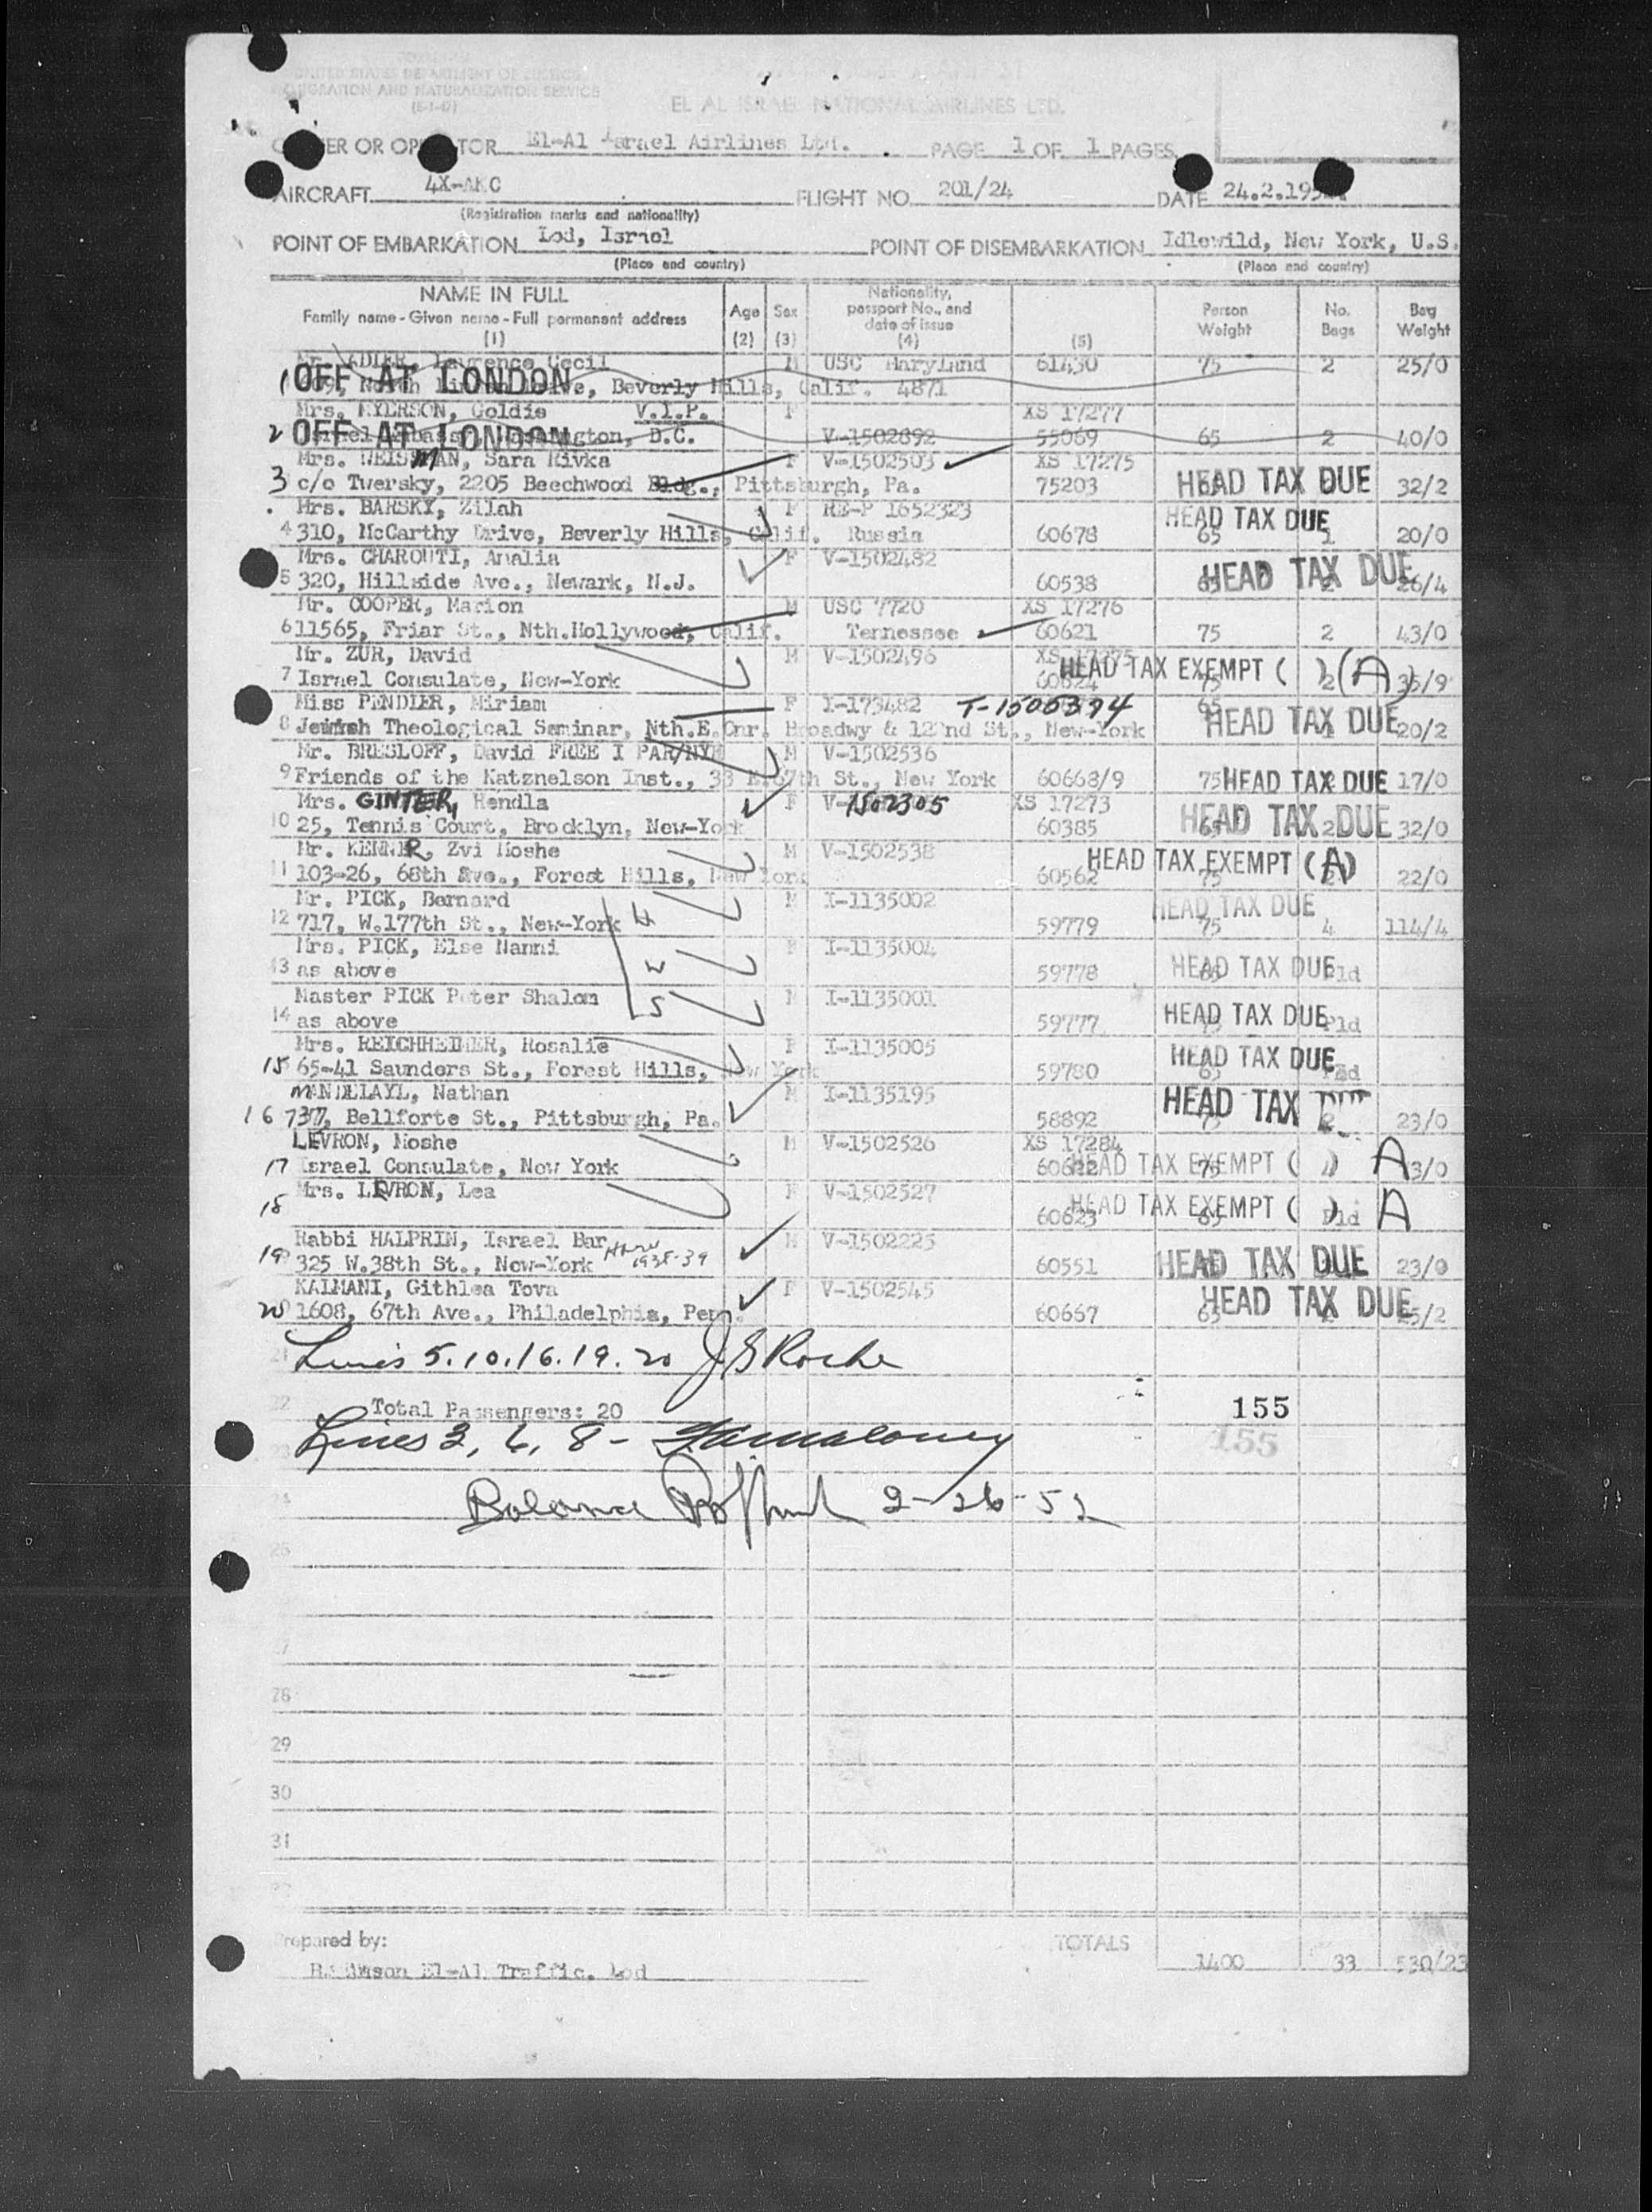 UNITED STATES DEPARTMENT OF JUSTICE
IMMIGRATION AND NATURALIZATION SERVICE
EL AL ISRAEL NATIONAL AIRLINES LTD.
OWNER OR OPERATOR El-Al Israel Airlines Ltd. PAGE 1 OF 1 PAGES
AIRCRAFT 4X-AKC FLIGHT NO. 201/24 DATE 24.2.195
(Registration marks and nationality)
POINT OF EMBARKATION Lod, Israel POINT OF DISEMBARKATION Idlewild, New York, U.S.
(Place and country) (Place and country)
NAME IN FULL Age Sex Nationality, passport No., and date of issue Person Weight No. Bags Bag Weight
Family name - Given name - Full permanent address
(1) (2) (3) (4) (5)
Mr. ADLER, Laurence Cecil M USC Maryland 61430 75 2 25/0
1 OFF AT LONDON Beverly Hills, Calif. 4871
Mrs. MYERSON, Goldie V.I.P. F XS 17277
2 OFF AT LONDON Washington, D.C. V-1502892 55069 65 2 40/0
Mrs. WEISMAN, Sara Rivka F V-1502503 XS 17275
3 c/o Twersky, 2205 Beechwood Bldg., Pittsburgh, Pa. 75203 HEAD TAX DUE 32/2
Mrs. BARSKY, Zilah F RE-P 1652323 HEAD TAX DUE
4 310, McCarthy Drive, Beverly Hills, Calif. Russia 60678 65 1 20/0
Mrs. CHAROUTI, Analia F V-1502482
5 320, Hillside Ave., Newark, N.J. 60538 65 HEAD TAX DUE 26/4
Mr. COOPER, Marion M USC 7720 XS 17276
6 11565, Friar St., Nth.Hollywood, Calif. Tennessee 60621 75 2 43/0
Mr. ZUR, David M V-1502496 XS 17275
7 Israel Consulate, New-York 60624 HEAD TAX EXEMPT ( ) (A) 75 2 35/9
Miss PENDLER, Miriam F I-173482 T-1505394 65
8 Jewish Theological Seminar, Nth.E.Cnr. Broadwy & 122nd St., New-York HEAD TAX DUE 20/2
Mr. BRESLOFF, David FREE I PAR/NYK M V-1502536
9 Friends of the Katznelson Inst., 33 E.67th St., New York 60668/9 75 HEAD TAX DUE 17/0
Mrs. GINTER, Hendla F V-1502305 XS 17273
10 25, Tennis Court, Brocklyn, New-York 60385 65 HEAD TAX DUE 2 32/0
Mr. KENNER, Zvi Moshe M V-1502538
11 103-26, 68th Ave., Forest Hills, New York 60562 HEAD TAX EXEMPT (A) 75 22/0
Mr. PICK, Bernard M I-1135002 HEAD TAX DUE
12 717, W.177th St., New-York H 59779 75 4 114/4
Mrs. PICK, Else Nanni F I-1135004
13 as above W 59778 65 HEAD TAX DUE Pld
Master PICK Peter Shalom M I-1135001
14 as above S 59777 HEAD TAX DUE Pld
Mrs. REICHHEIMER, Rosalie F I-1135005
15 65-41 Saunders St., Forest Hills, New York 59780 65 HEAD TAX DUE Pld
MANDELAYL, Nathan M I-1135195
16 737, Bellforte St., Pittsburgh, Pa. 58892 HEAD TAX 75 2 23/0
LEVRON, Moshe M V-1502526 XS 17284
17 Israel Consulate, New York 60622 HEAD TAX EXEMPT ( ) A 75 3/0
Mrs. LEVRON, Lea F V-1502527
18 60623 HEAD TAX EXEMPT ( ) A 65 Pld
Rabbi HALPRIN, Israel Bar M V-1502225
19 325 W.38th St., New-York 1938-39 60551 HEAD TAX DUE 23/0
KALMANI, Githlea Tova F V-1502545
20 1608, 67th Ave., Philadelphia, Pen. 60667 65 HEAD TAX DUE 25/2
21 5.10.16.19.20 J S Roche
22 Total Passengers: 20 155
23 Lines 3, 6, 8 - 155
24 Balance 2-26-52
25
28
29
30
31
Prepared by: TOTALS 1400 33 530/23
El-Al Traffic. Lod